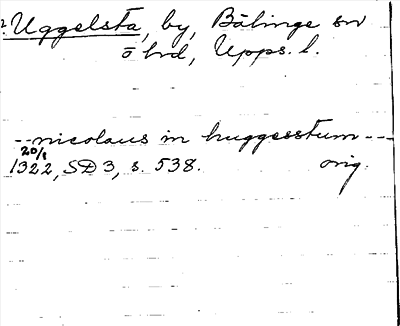 ? Uggelsta, by, Bälinge sn
ö hd, Upps. l.
-- nicolaus in huggesstum ---
20/1
1322, SD 3, s. 538. orig.